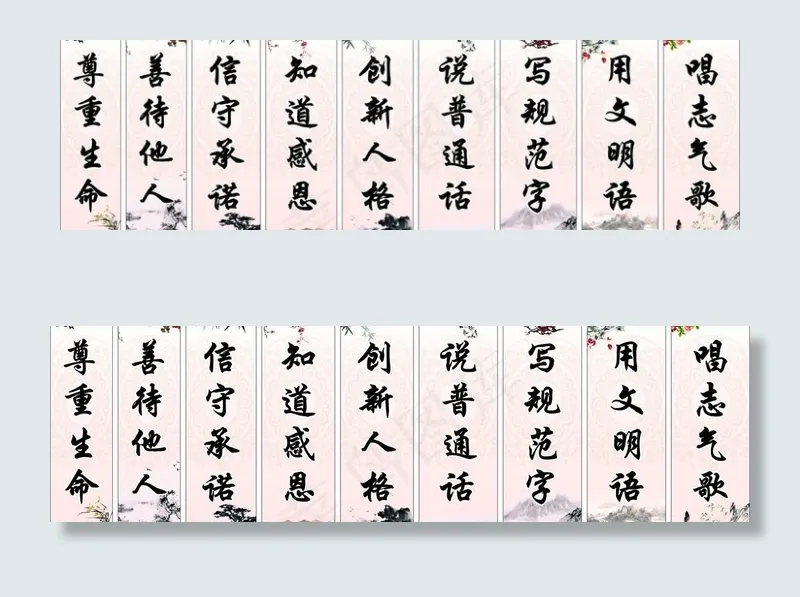 尊重生命
善待他人
信守承诺
知道感恩
创新人格
说普通话
写规范字
用文明语
唱志气歌
尊重生命
善待他人
信守承诺
知道感恩
创新人格
说普通话
写规范字
用文明语
唱志气歌